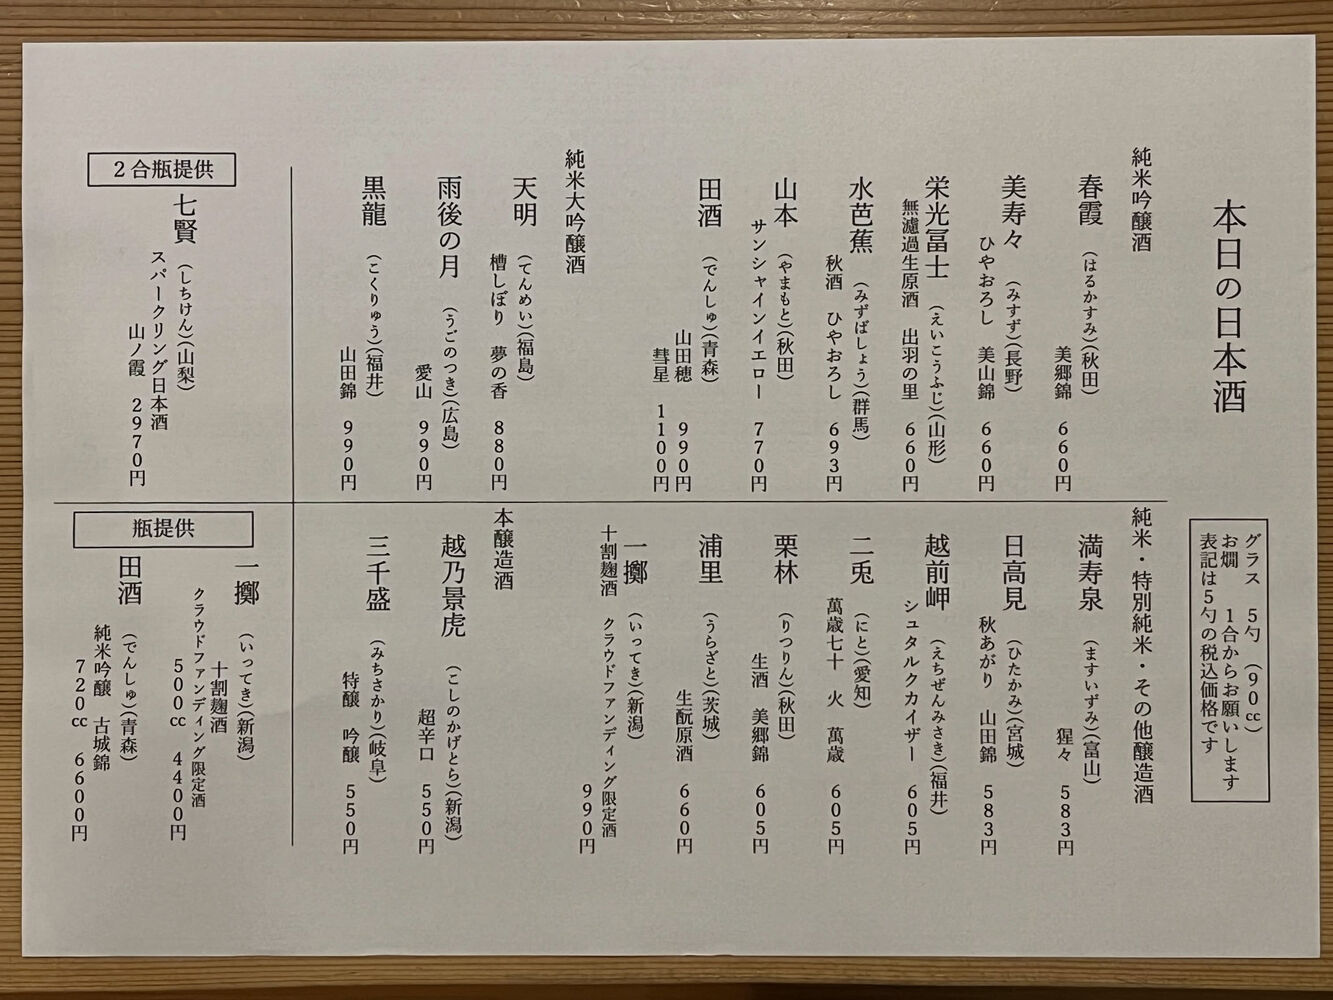 本日の日本酒
グラス　5勺　(90cc)
お燗　1合からお願いします
表記は5勺の税込価格です
純米吟醸酒
春霞　(はるかすみ)(秋田)
美郷錦　660円
美寿々　(みすず)(長野)
ひやおろし　美山錦　660円
栄光冨士　(えいこうふじ)(山形)
無濾過生原酒　出羽の里　660円
水芭蕉　(みずばしょう)(群馬)
秋酒　ひやおろし　693円
山本　(やまもと)(秋田)
サンシャインイエロー　770円
田酒　(でんしゅ)(青森)
山田穂　990円
彗星　1100円
純米大吟醸酒
天明　(てんめい)(福島)
槽しぼり　夢の香　880円
雨後の月　(うごのつき)(広島)
愛山　990円
黒龍　(こくりゅう)(福井)
山田錦　990円
純米・特別純米・その他醸造酒
満寿泉　(ますいずみ)(富山)
猩々　583円
日高見　(ひたかみ)(宮城)
秋あがり　山田錦　583円
越前岬　(えちぜんみさき)(福井)
シュタルクカイザー　605円
二兎　(にと)(愛知)
萬歳七十　火　萬歳　605円
栗林　(りつりん)(秋田)
生酒　美郷錦　605円
浦里　(うらざと)(茨城)
生酛原酒　660円
一擲　(いってき)(新潟)
十割麹酒　クラウドファンディング限定酒
990円
本醸造酒
越乃景虎　(こしのかげとら)(新潟)
超辛口　550円
三千盛　(みちさかり)(岐阜)
特醸　吟醸　550円
2合瓶提供
七賢　(しちけん)(山梨)
スパークリング日本酒
山ノ霞　2970円
瓶提供
一擲　(いってき)(新潟)
十割麹酒
クラウドファンディング限定酒
500cc　4400円
田酒　(でんしゅ)(青森)
純米吟醸　古城錦
720cc　6600円